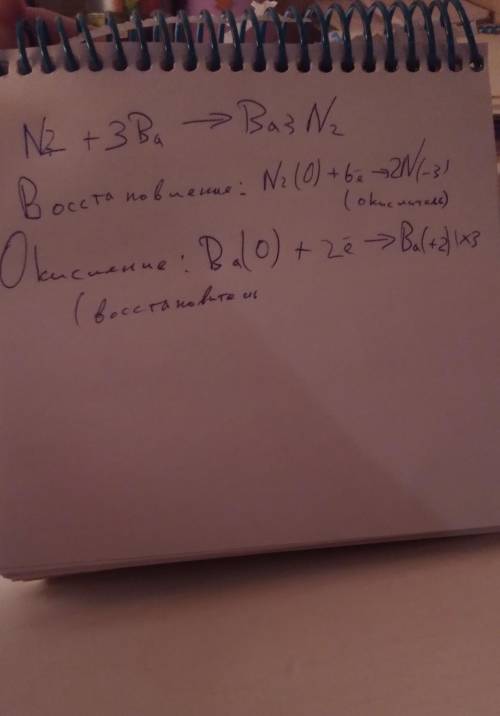 N2 + 3Ba → Ba3N2
Восстановление: N2(0) + 6ē → 2N(-3)
(окислитель)
Окисление: Ba(0) + 2ē → Ba(+2) | x3
(восстановитель